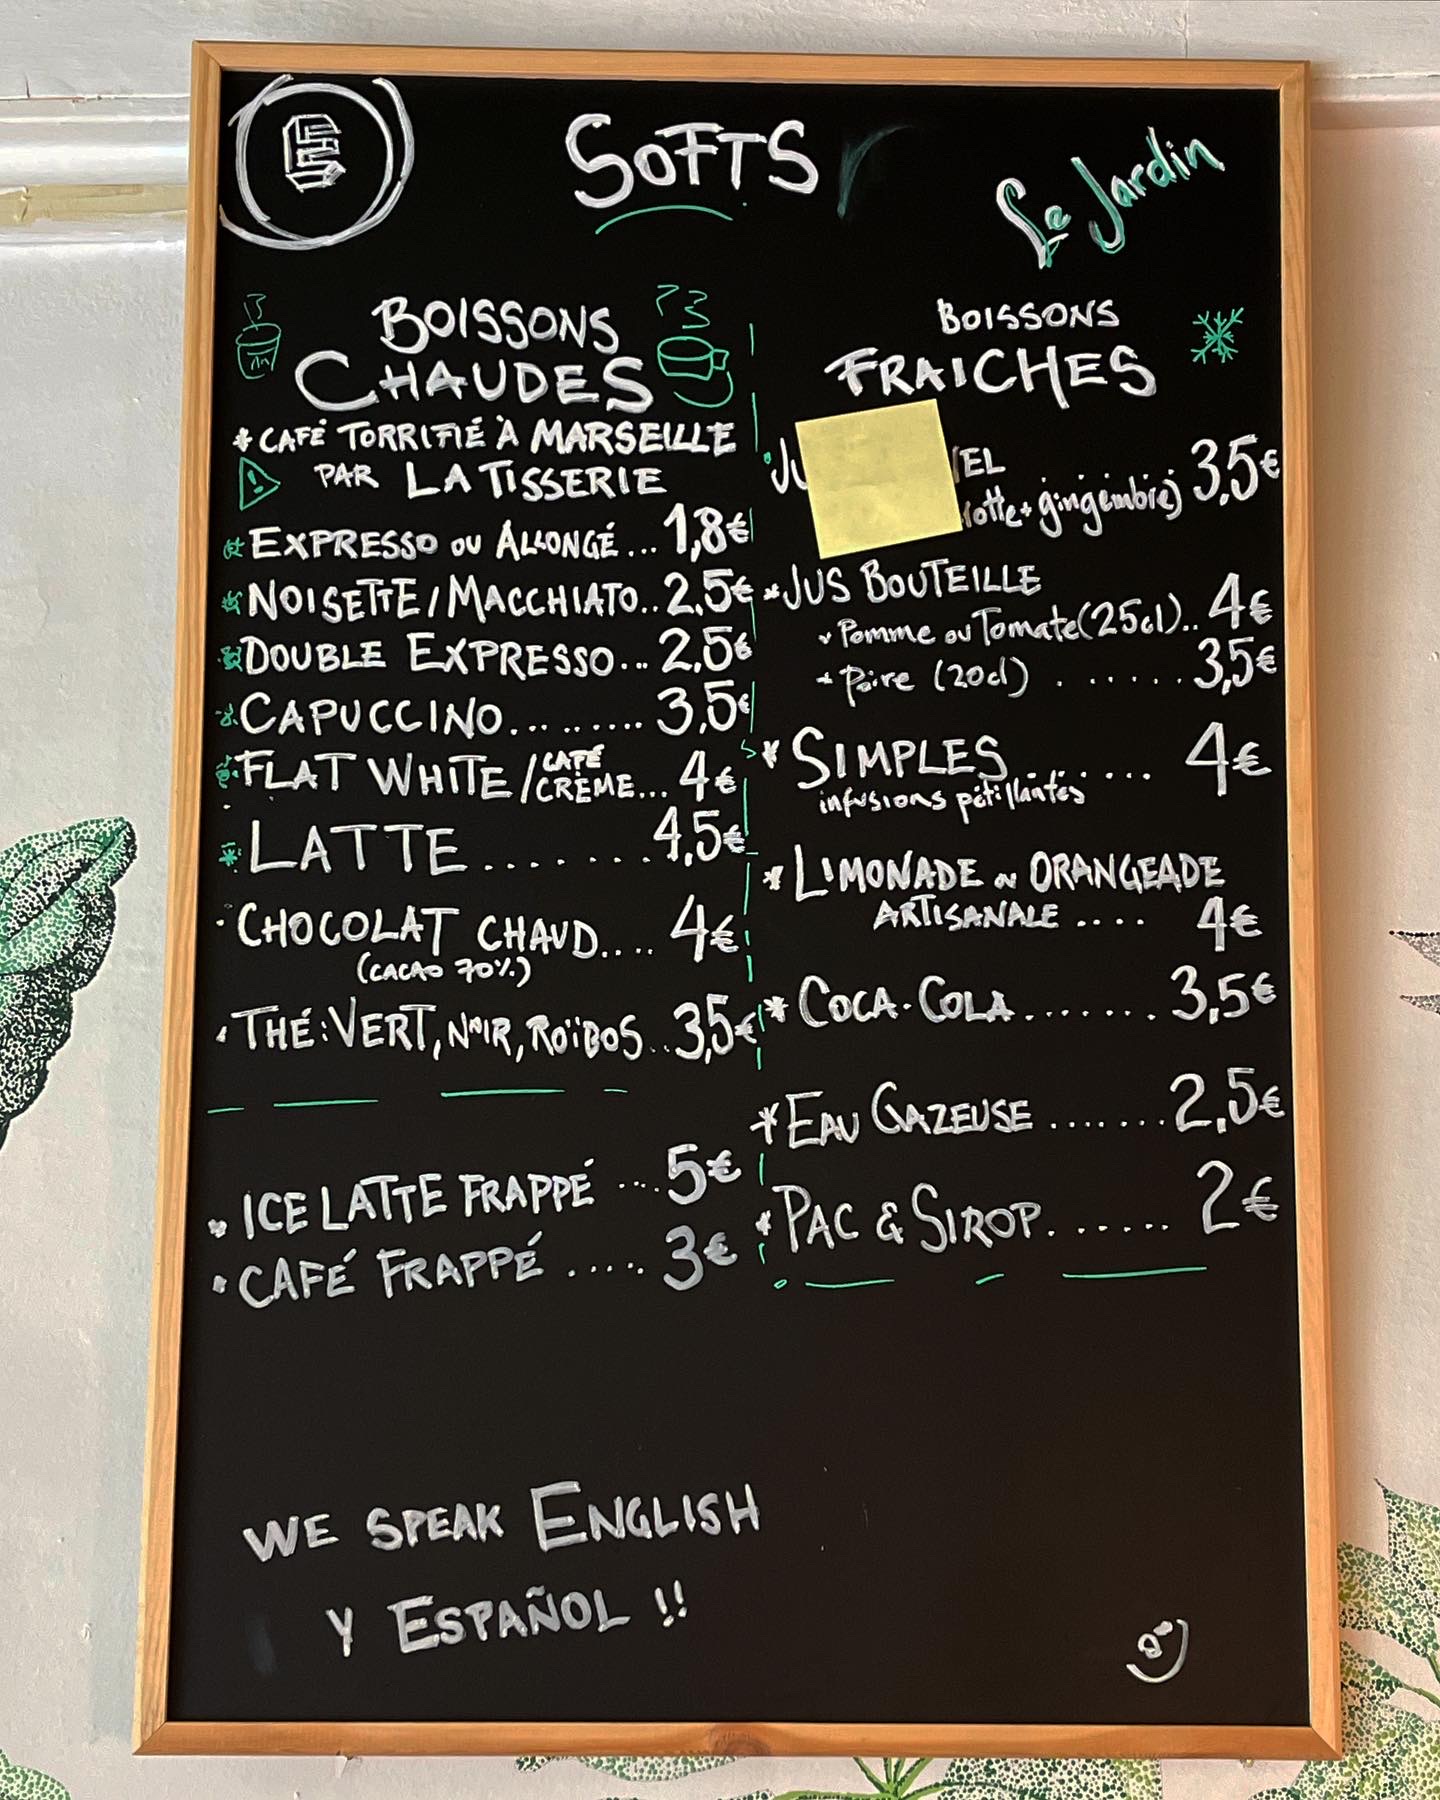 S
SOFTS
Le Jardin
BOISSONS
CHAUDES
* CAFÉ TORRIFIÉ À MARSEILLE
PAR LA TISSERIE
EXPRESSO OU ALLONGÉ... 1,8€
NOISETTE/MACCHIATO.. 2,5€
DOUBLE EXPRESSO... 2,5€
CAPUCCINO......... 3,5€
FLAT WHITE / CAFÉ CRÈME... 4€
LATTE........ 4,5€
CHOCOLAT CHAUD.... 4€
(CACAO 70%)
THÉ: VERT, NOIR, ROÏBOS.. 3,5€
ICE LATTE FRAPPÉ .... 5€
CAFÉ FRAPPÉ .... 3€
BOISSONS
FRAICHES
3,5€
gingembre)
* JUS BOUTEILLE
Pomme ou Tomate (25cl).. 4€
Poire (20cl) ....... 3,5€
* SIMPLES ....... 4€
infusions pétillantes
* LIMONADE ou ORANGEADE
ARTISANALE .... 4€
* COCA-COLA....... 3,5€
* EAU GAZEUSE ....... 2,5€
* PAC & SIROP....... 2€
WE SPEAK ENGLISH
Y ESPAÑOL !!